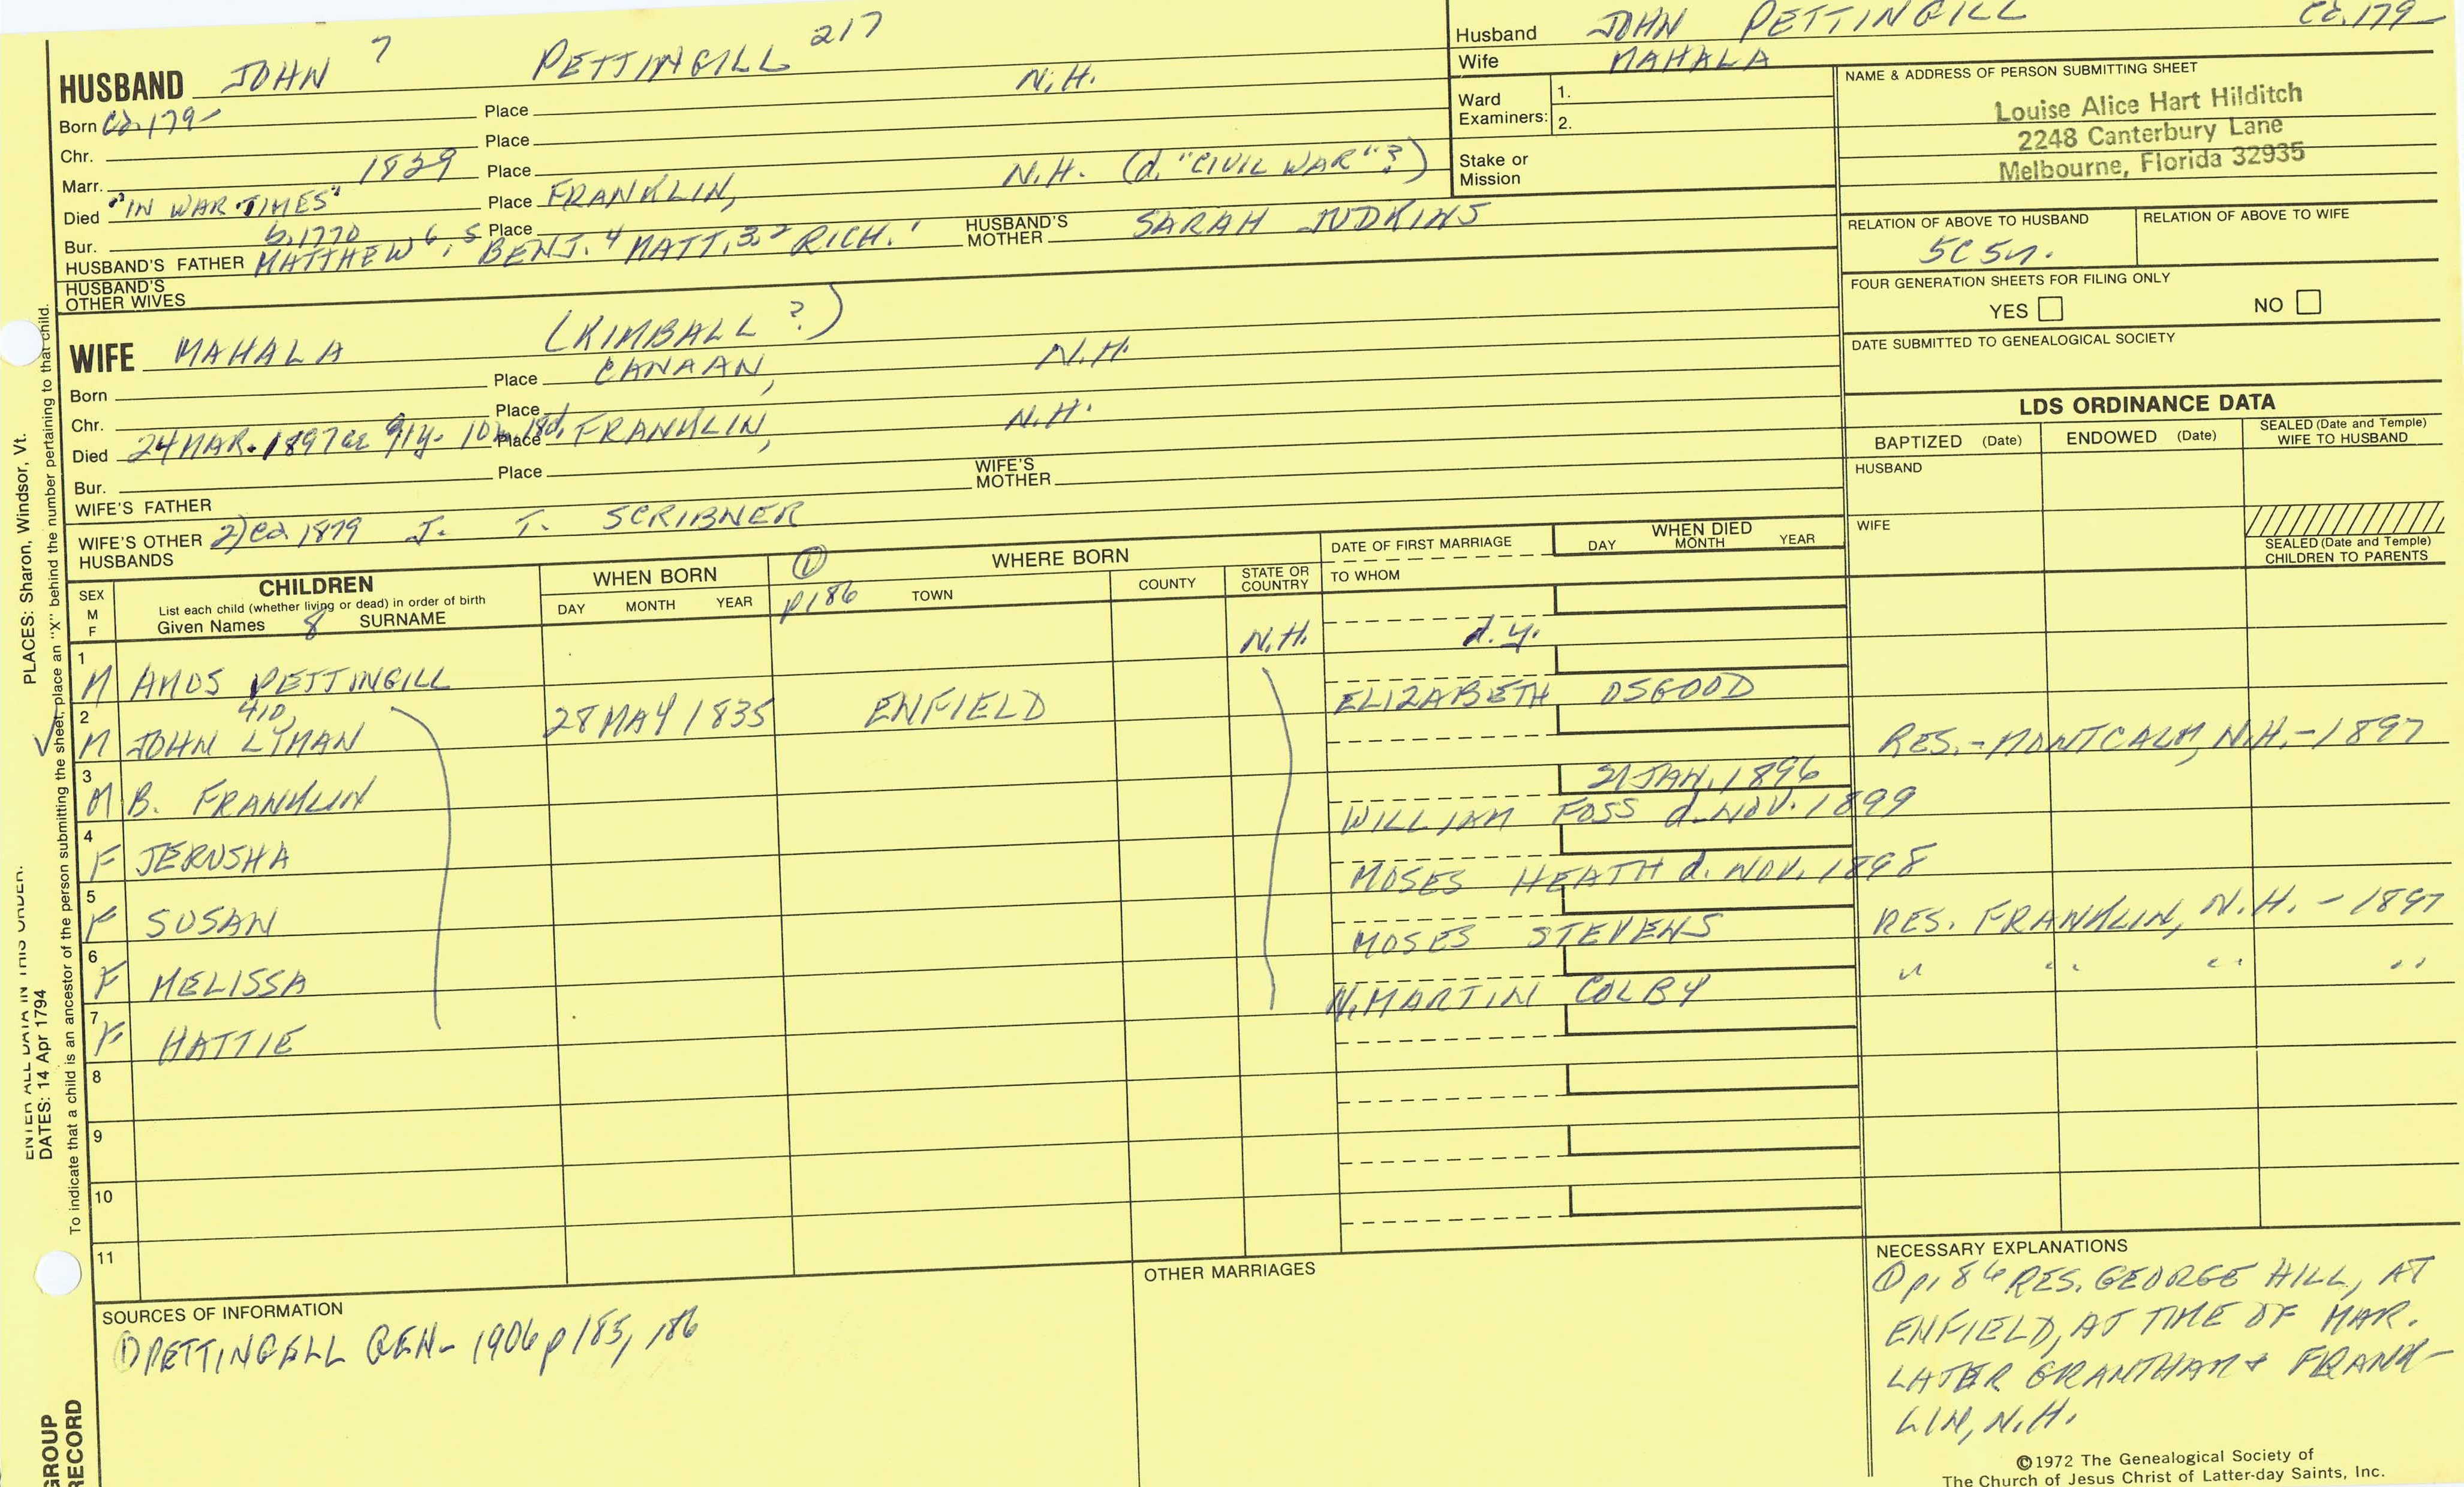 HUSBAND JOHN 7 PETTINGILL 217
Born Ca. 179- Place N.H.
Chr. Place
Marr. 1829 Place
Died "IN WAR TIMES" Place FRANKLIN, N.H. (d. "CIVIL WAR"?)
Bur. Place
b. 1770
HUSBAND'S FATHER MATTHEW 6, 5 BENJ. 4 MATT. 3, 2 RICH. 1 HUSBAND'S MOTHER SARAH JUDKINS
HUSBAND'S OTHER WIVES
WIFE MAHALA (KIMBALL ?)
Born Place CANAAN, N.H.
Chr. Place
Died 24 MAR. 1897 ae 91y- 10m 18d. Place FRANKLIN, N.H.
Bur. Place
WIFE'S FATHER WIFE'S MOTHER
WIFE'S OTHER HUSBANDS 2) ca 1879 J. T. SCRIBNER
Husband JOHN PETTINGILL Ca. 179-
Wife MAHALA
Ward Examiners: 1.
2.
Stake or Mission
NAME & ADDRESS OF PERSON SUBMITTING SHEET
Louise Alice Hart Hilditch
2248 Canterbury Lane
Melbourne, Florida 32935
RELATION OF ABOVE TO HUSBAND RELATION OF ABOVE TO WIFE
5C 5r.
FOUR GENERATION SHEETS FOR FILING ONLY
YES NO
DATE SUBMITTED TO GENEALOGICAL SOCIETY
LDS ORDINANCE DATA
BAPTIZED (Date) ENDOWED (Date) SEALED (Date and Temple) WIFE TO HUSBAND
HUSBAND
WIFE
SEALED (Date and Temple) CHILDREN TO PARENTS
SEX M F
CHILDREN
List each child (whether living or dead) in order of birth
Given Names 8 SURNAME
WHEN BORN
DAY MONTH YEAR
① p186
WHERE BORN
TOWN COUNTY STATE OR COUNTRY
DATE OF FIRST MARRIAGE
TO WHOM
WHEN DIED
DAY MONTH YEAR
1 M AMOS PETTINGILL N.H. d. y.
2 M JOHN LYMAN 410 28 MAY 1835 ENFIELD ELIZABETH OSGOOD
3 M B. FRANKLIN RES.- MONTCALM, N.H. - 1897
4 F JERUSHA 21 JAN. 1896 WILLIAM FOSS d. NOV. 1899
5 F SUSAN MOSES HEATH d. NOV. 1898
6 F MELISSA MOSES STEVENS RES. FRANKLIN, N.H. - 1897
7 F HATTIE N. MARTIN COLBY " " " "
8
9
10
11
SOURCES OF INFORMATION
① PETTINGELL GEN- 1906 p 185, 186
OTHER MARRIAGES
NECESSARY EXPLANATIONS
① p186 RES. GEORGE HILL, AT
ENFIELD, AT TIME OF MAR.
LATER GRANTHAM & FRANK-
LIN, N.H.
©1972 The Genealogical Society of
The Church of Jesus Christ of Latter-day Saints, Inc.
ENTER ALL DATA IN THIS ORDER:
PLACES: Sharon, Windsor, Vt.
DATES: 14 Apr 1794
To indicate that a child is an ancestor of the person submitting the sheet, place an "X" behind the number pertaining to that child.
GROUP
RECORD